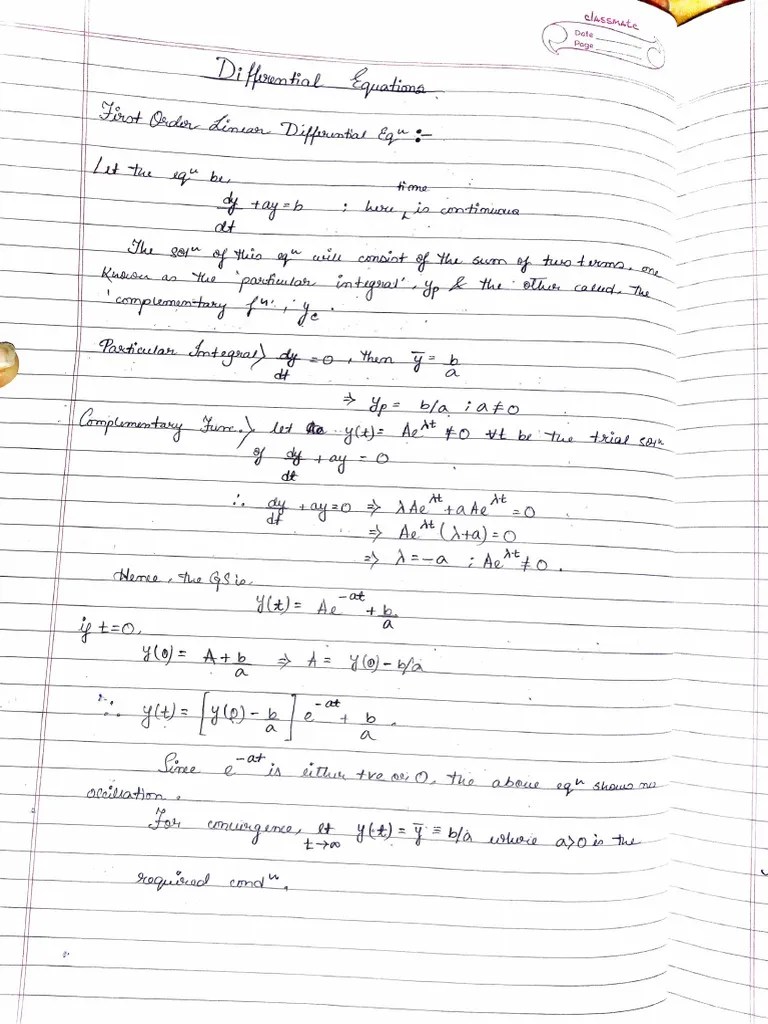 classmate
Date
Page
Differential Equations
First Order Linear Differential Eqⁿ :-
Let the eqⁿ be,
dy/dt + ay = b ; here time is continuous
The solⁿ of this eqⁿ will consist of the sum of two terms, one
known as the 'particular integral', yp & the other called the
'complementary fⁿ', yc.
Particular Integral) dy/dt = 0, then ȳ = b/a
⇒ yp = b/a ; a ≠ 0
Complementary Func.) let y(t) = Ae^λt ≠ 0 ∀t be the trial solⁿ
of dy/dt + ay = 0
∴ dy/dt + ay = 0 ⇒ λAe^λt + aAe^λt = 0
⇒ Ae^λt (λ+a) = 0
⇒ λ = -a ; Ae^λt ≠ 0.
Hence, the GS is,
y(t) = Ae^-at + b/a
if t=0,
y(0) = A + b/a ⇒ A = y(0) - b/a
∴ y(t) = [y(0) - b/a] e^-at + b/a.
Since e^-at is either +ve or 0, the above eqⁿ shows no
occilation.
For convergence, lt t→∞ y(t) = ȳ = b/a where a>0 is the
required condⁿ.